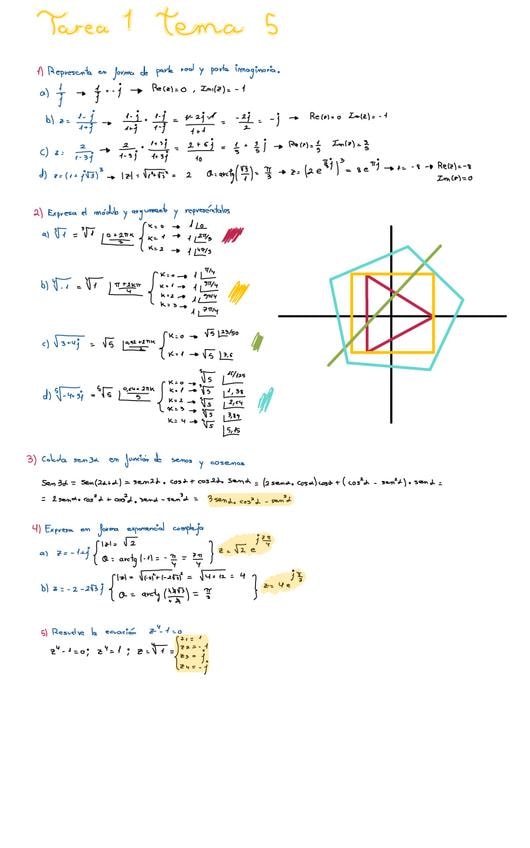 Tarea 1 Tema 5
1) Representa en forma de parte real y parte imaginaria.
a) 1/j → 1/j · -j → Re(z)=0, Im(z)=-1
b) z = 1-j/1+j → 1-j/1+j · 1-j/1-j = = -2j/2 = -j → Re(z)=0 Im(z)=-1
c) z: 2/1-3j → 2/1-3j · 1+3j/1+3j = 2+6j/10 = 1/5 + 3/5 j → Re(z)=1/5 Im(z)=3/5
d) z=(1+j√3)³ → |z|=√1²+√3² = 2 θ=arctg(√3/1)=π/3 → z=(2e^π/3j)³ = 8e^πj → = -8 → Re(z)=-8
Im(z)=0
2) Expresa el módulo y argumento y represéntalos
a) ³√1 = ³√1 |0+2πK/3 { K=0 → 1|0
K=1 → 1|2π/3
K=2 → 1|4π/3
b) ⁴√-1 = ⁴√1 |π+2Kπ/4 { K=0 → 1|π/4
K=1 → 1|3π/4
K=2 → 1|5π/4
K=3 → 1|7π/4
c) √3+4j = √5 { K=0 → √5 |23/50
K=1 → √5 |3,6
d) ⁵√-4+3j = ⁵√5 { K=0 → ⁵√5
K=1 → ⁵√5 |1,38
K=2 → ⁵√5
K=3 → ⁵√5 |3,89
K=4 → ⁵√5 |5,15
3) Calcula sen3α en función de senos y cosenos
Sen3α = Sen(2α+α) = sen2α · cosα + cos2α · senα = (2senα · cosα)cosα + (cos²α - sen²α) · senα =
= 2senα · cos²α + cos²α · senα - sen³α = 3senα · cos²α - sen³α
4) Expresa en forma exponencial compleja
a) z=-1+j { |z|=√2
θ = arctg(-1) = -π/4 = 7π/4 } z=√2 e^j7π/4
b) z=-2-2√3j { |z|=√(-2)²+(-2√3)² = √4+12 = 4
θ = arctg = π/3 } z=4e^jπ/3
5) Resuelve la ecuación z⁴-1=0
z⁴-1=0; z⁴=1; z=⁴√1 = { z1=1
z2=-1
z3=j
z4=-j